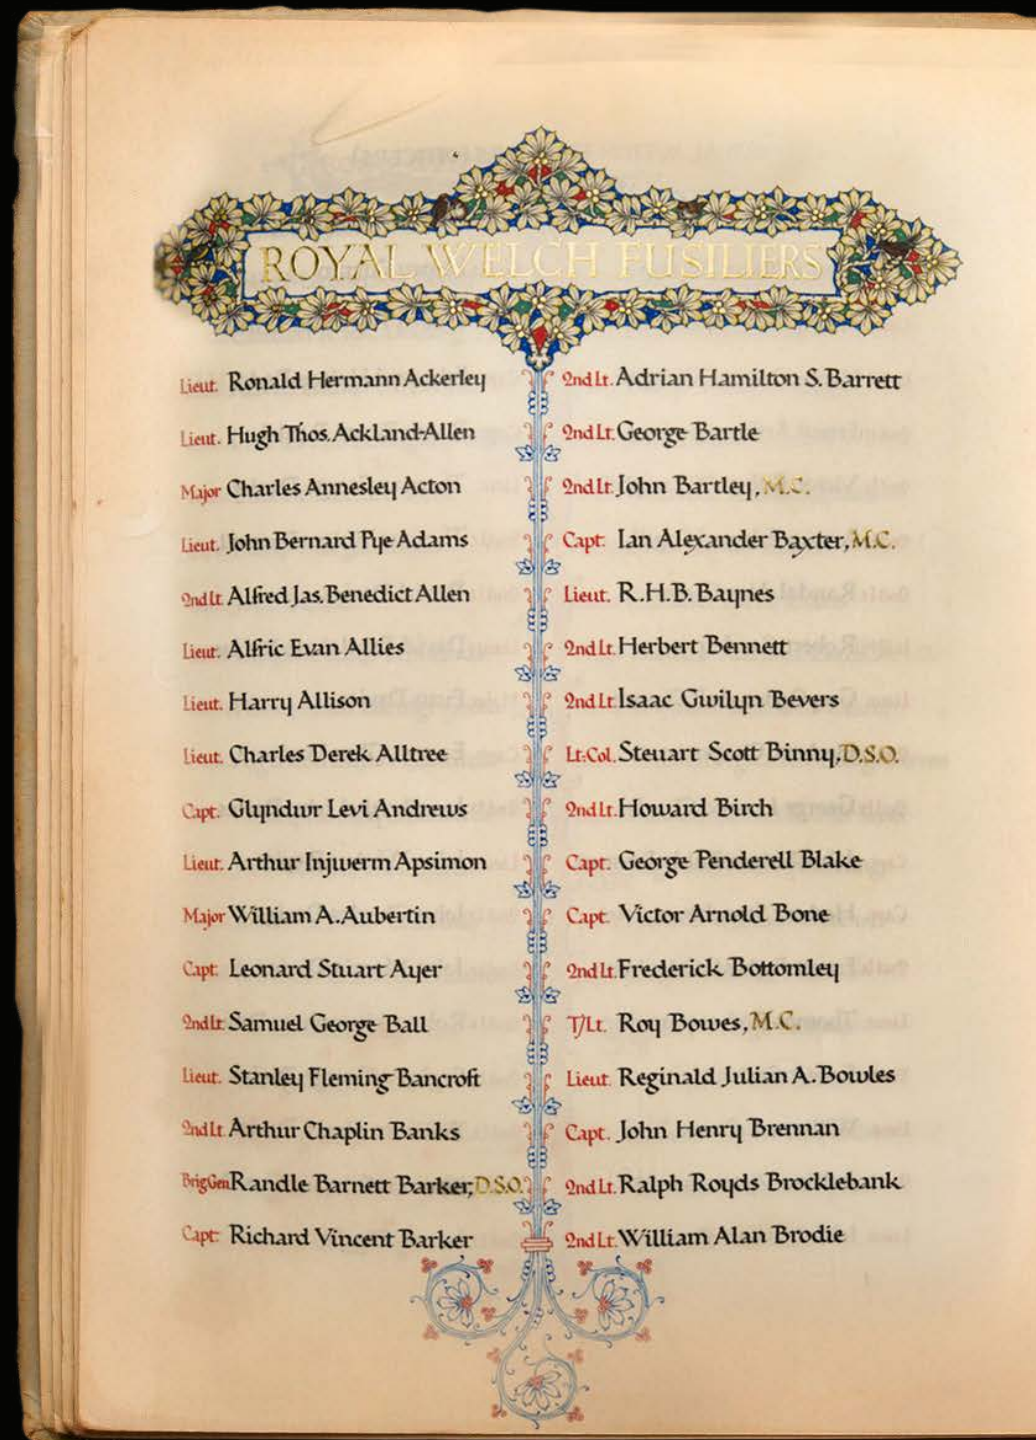 ROYAL WELCH FUSILIERS
Lieut. Ronald Hermann Ackerley
Lieut. Hugh Thos. Ackland-Allen
Major Charles Annesley Acton
Lieut. John Bernard Pye Adams
2nd Lt. Alfred Jas. Benedict Allen
Lieut. Alfric Evan Allies
Lieut. Harry Allison
Lieut. Charles Derek Alltree
Capt. Glyndwr Levi Andrews
Lieut. Arthur Injwerm Apsimon
Major William A. Aubertin
Capt. Leonard Stuart Ayer
2nd Lt. Samuel George Ball
Lieut. Stanley Fleming Bancroft
2nd Lt. Arthur Chaplin Banks
Brig Gen Randle Barnett Barker, D.S.O.
Capt. Richard Vincent Barker
2nd Lt. Adrian Hamilton S. Barrett
2nd Lt. George Bartle
2nd Lt. John Bartley, M.C.
Capt. Ian Alexander Baxter, M.C.
Lieut. R.H.B. Baynes
2nd Lt. Herbert Bennett
2nd Lt. Isaac Gwilyn Bevers
Lt-Col. Steuart Scott Binny, D.S.O.
2nd Lt. Howard Birch
Capt. George Penderell Blake
Capt. Victor Arnold Bone
2nd Lt. Frederick Bottomley
T/Lt. Roy Bowes, M.C.
Lieut. Reginald Julian A. Bowles
Capt. John Henry Brennan
2nd Lt. Ralph Royds Brocklebank
2nd Lt. William Alan Brodie